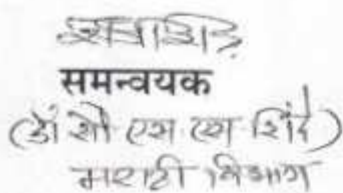 समन्वयक
(डॉ सौ एस एस शिंदे)
मराठी विभाग